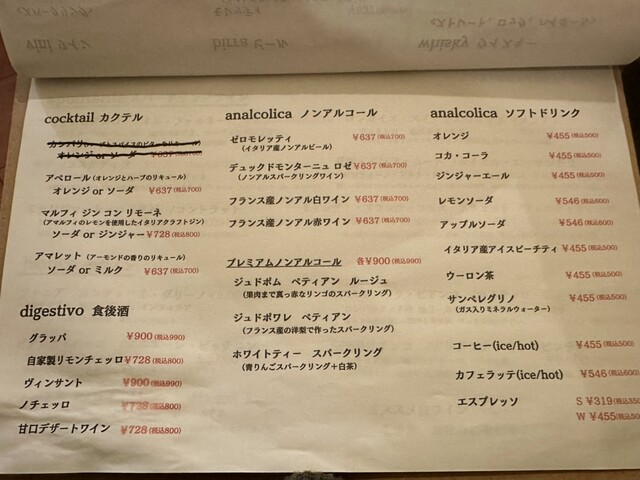 vini ワイン
birra ビール
whisky ウィスキー
(ストレート、ロック、ハイボール)
cocktail カクテル
オレンジ or ソーダ ¥637(税込700)
アペロール(オレンジとハーブのリキュール)
オレンジ or ソーダ ¥637(税込700)
マルフィ ジン コン リモーネ
(アマルフィのレモンを使用したイタリアクラフトジン)
ソーダ or ジンジャー ¥728(税込800)
アマレット(アーモンドの香りのリキュール)
ソーダ or ミルク ¥637(税込700)
digestivo 食後酒
グラッパ ¥900(税込990)
自家製リモンチェッロ ¥728(税込800)
ヴィンサント ¥900(税込990)
ノチェッロ ¥738(税込800)
甘口デザートワイン ¥728(税込800)
analcolica ノンアルコール
ゼロモレッティ ¥637(税込700)
(イタリア産ノンアルビール)
デュックドモンターニュ ロゼ ¥637(税込700)
(ノンアルスパークリングワイン)
フランス産ノンアル白ワイン ¥637(税込700)
フランス産ノンアル赤ワイン ¥637(税込700)
プレミアムノンアルコール 各¥900(税込990)
ジュドポム ペティアン ルージュ
(果肉まで真っ赤なリンゴのスパークリング)
ジュドポワレ ペティアン
(フランス産の洋梨で作ったスパークリング)
ホワイトティー スパークリング
(青りんごスパークリング+白茶)
analcolica ソフトドリンク
オレンジ ¥455(税込500)
コカ・コーラ ¥455(税込500)
ジンジャーエール ¥455(税込500)
レモンソーダ ¥546(税込600)
アップルソーダ ¥546(税込600)
イタリア産アイスピーチティ ¥455(税込500)
ウーロン茶 ¥455(税込500)
サンペレグリノ ¥455(税込500)
(ガス入りミネラルウォーター)
コーヒー(ice/hot) ¥455(税込500)
カフェラッテ(ice/hot) ¥546(税込600)
エスプレッソ S ¥319(税込350
W ¥455(税込500